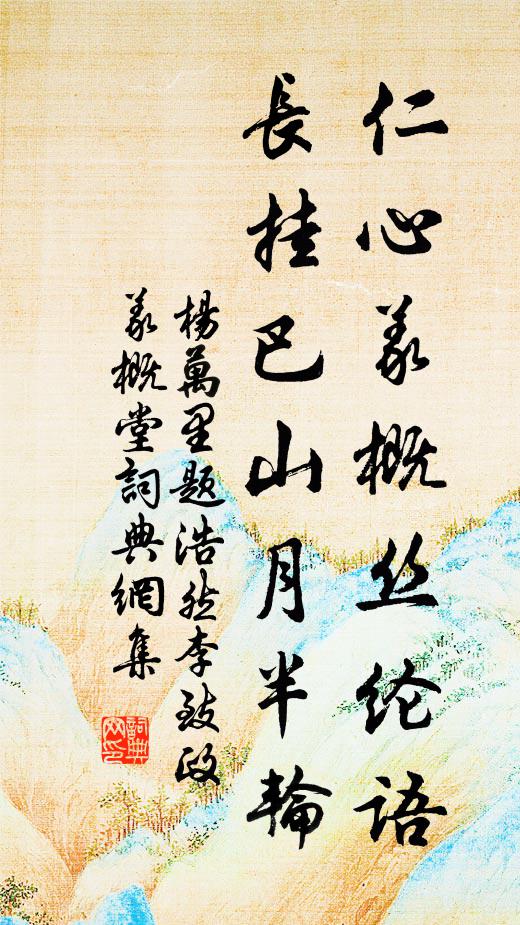 仁心义概丝纶语
長挂巴山月半輪
楊萬里题浩然李致政
义概堂詞典網集
詞典
网印